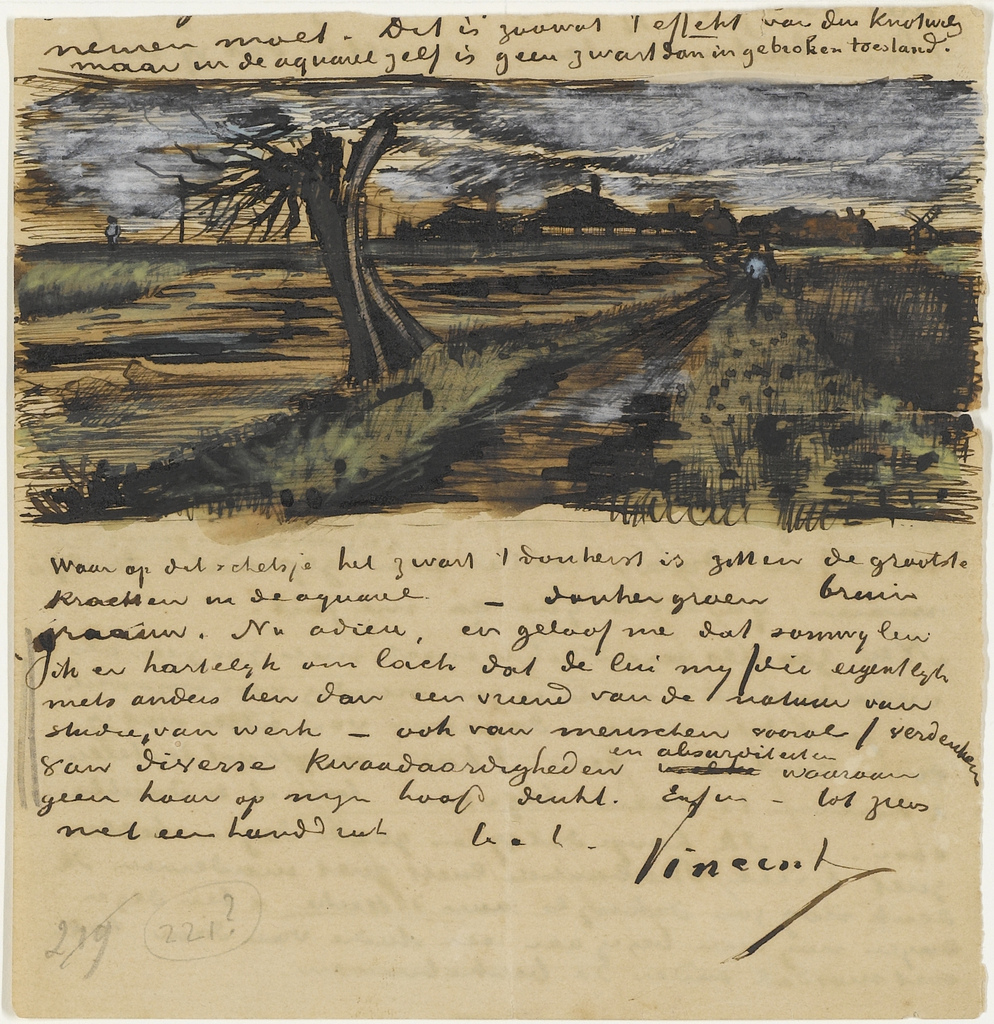 nemen moet. Dit is zoowat 't effekt van den knotwilg
maar in de aquarel zelf is geen zwart dan in gebroken toestand.
Waar op dit schetsje het zwart 't donkerst is zitten de grootste
krachten in de aquarel – donkergroen bruin
graauw. Nu adieu, en geloof me dat somwylen
ik er hartelyk om lach dat de lui my /die eigentlyk
niets anders ben dan een vriend van de natuur van
studie, van werk – ook van menschen vooral/ verdenken
van diverse kwaadaardigheden en absurditeiten waaraan
geen haar op myn hoofd denkt. Enfin – tot ziens
met een handdruk t. à t.
Vincent
219
221?